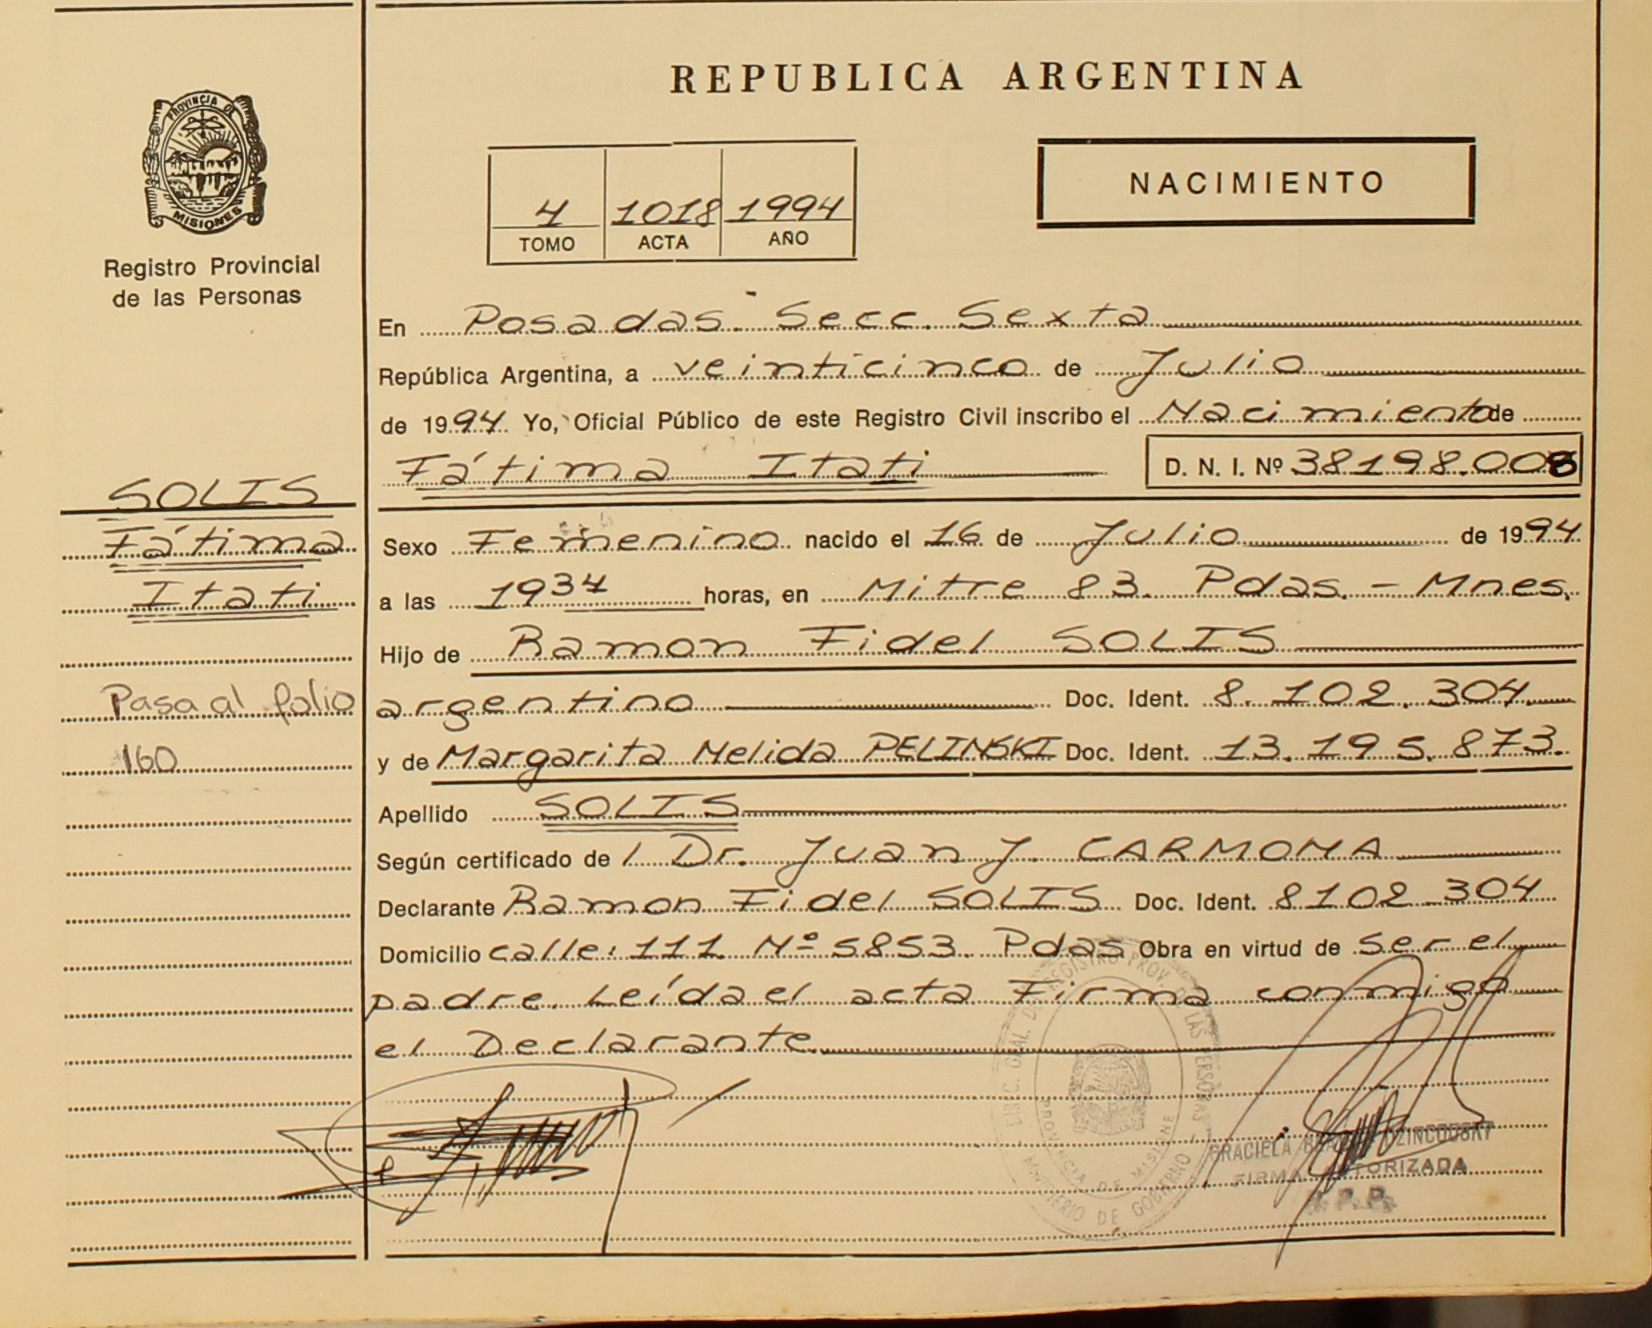 REPUBLICA ARGENTINA
PROVINCIA DE
MISIONES
Registro Provincial
de las Personas
4 1018 1994
TOMO ACTA AÑO
NACIMIENTO
En Posadas. Secc. Sexta
República Argentina, a veinticinco de Julio
de 1994. Yo, Oficial Público de este Registro Civil inscribo el Nacimiento de
Fátima Itati D. N. I. Nº 38198.008
SOLIS
Fátima
Itati
Pasa al folio
160
Sexo Femenino nacido el 16 de Julio de 1994
a las 1934 horas, en Mitre 83. Pdas. - Mnes.
Hijo de Ramon Fidel SOLIS
argentino Doc. Ident. 8.102.304.
y de Margarita Nelida PELINSKI Doc. Ident. 13.195.873.
Apellido SOLIS
Según certificado de / Dr. Juan J. CARMONA
Declarante Ramon Fidel SOLIS Doc. Ident. 8102.304
Domicilio calle: 111 Nº 5853. Pdas Obra en virtud de ser el
padre. Leída el acta Firma conmigo
el Declarante.
DIREC. GRAL. DE REGISTRO PROV. DE LAS PERSONAS
MINISTERIO DE GOBIERNO
PROVINCIA DE MISIONES
GRACIELA DZINCOUSKY
FIRMA AUTORIZADA
R.P.P.